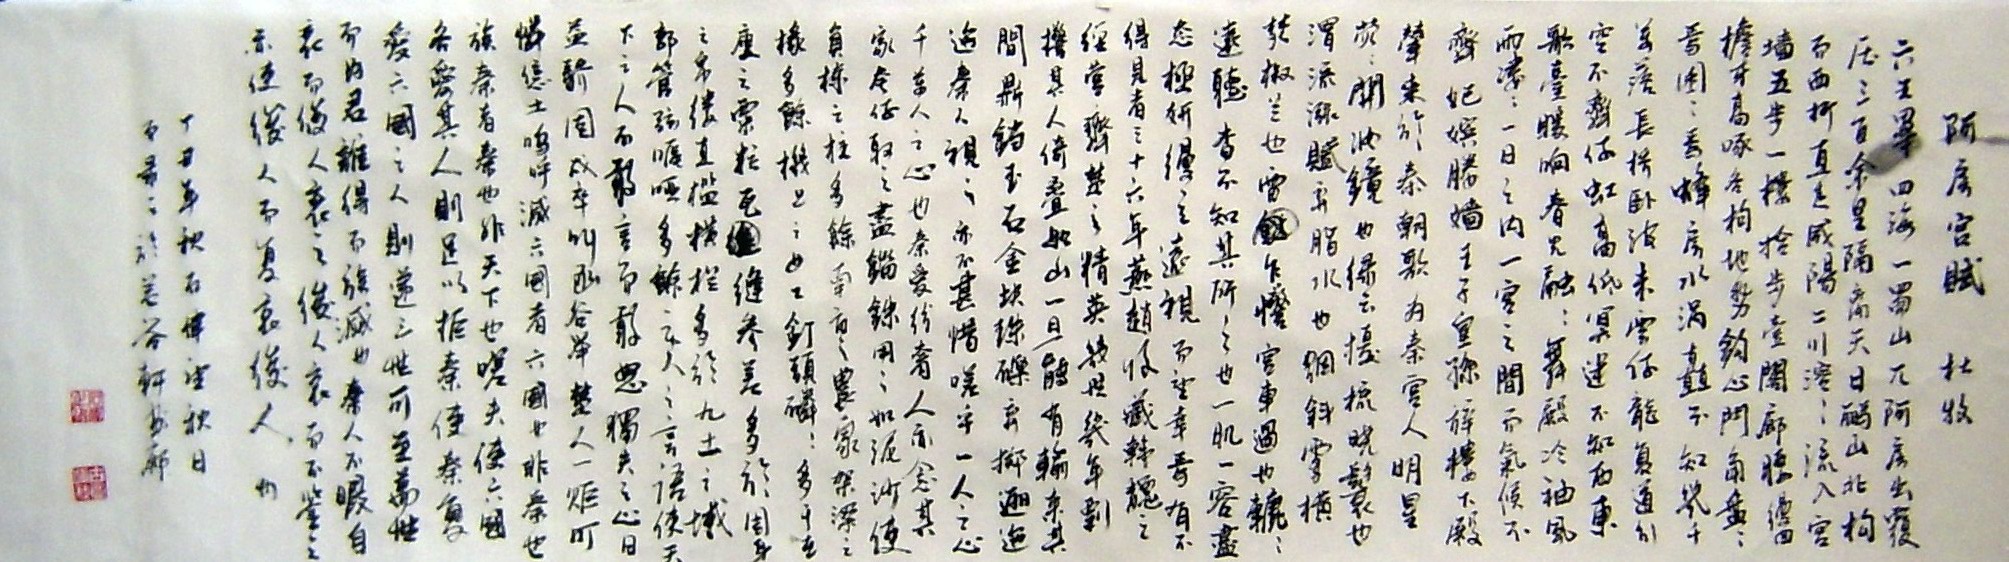 阿房宫賦 杜牧
六王畢四海一蜀山兀阿房出覆
压三百余里隔离天日驪山北构
而西折直走咸陽二川溶：流入宫
墙五步一楼拾步壹閣廊腰縵回
檐牙高啄各抱地勢鈎心鬥角盘：
焉囷：焉蜂房水涡矗不知幾千
萬落長橋卧波未雲何龍复道行
空不霽何虹高低冥迷不知西東
歌臺暖响春光融：舞殿冷袖風
雨凄：一日之内一宫之間而氣候不
齊妃嬪媵嬙王子皇孫辞樓下殿
輦来於秦朝歌为秦宫人明星
熒：開妝鏡也绿云擾梳晓鬟也
渭流漲腻弃脂水也烟斜雾横
焚椒兰也雷霆乍惊宫車過也轆：
遠聽杳不知其所之也一肌一容盡
态極妍縵立遠視而望幸焉有不
得見者三十六年燕趙收藏韩魏之
经营齊楚之精英幾世幾年剽
掠其人倚叠如山一旦能有輸来其
間鼎鐺玉石金块珠礫弃擲邐迤
迤秦人視之亦不甚惜嗟乎一人之心
千萬人之心也秦爱纷奢人亦念其
家奈何取之盡錙銖用之如泥沙使
負棟之柱多餘南亩之農家架梁之
椽多餘機上之女工釘頭磷：多于在
庾之粟粒瓦縫参差多於周身
之帛缕直槛横栏多於九土之域
郭管弦嘔啞多餘市人之言語使天
下之人不敢言而敢怒獨夫之心日
益驕固戍卒叫函谷举楚人一炬可
憐焦土嗚呼滅六國者六國也非秦也
族秦者秦也非天下也嗟夫使六國
各愛其人則足以拒秦使秦复
爱六國之人則递三世可至萬世
而为君誰得而族滅也秦人不暇自
哀而後人哀之後人哀而不鉴之
亦使後人而复哀後人也
丁丑年秋石